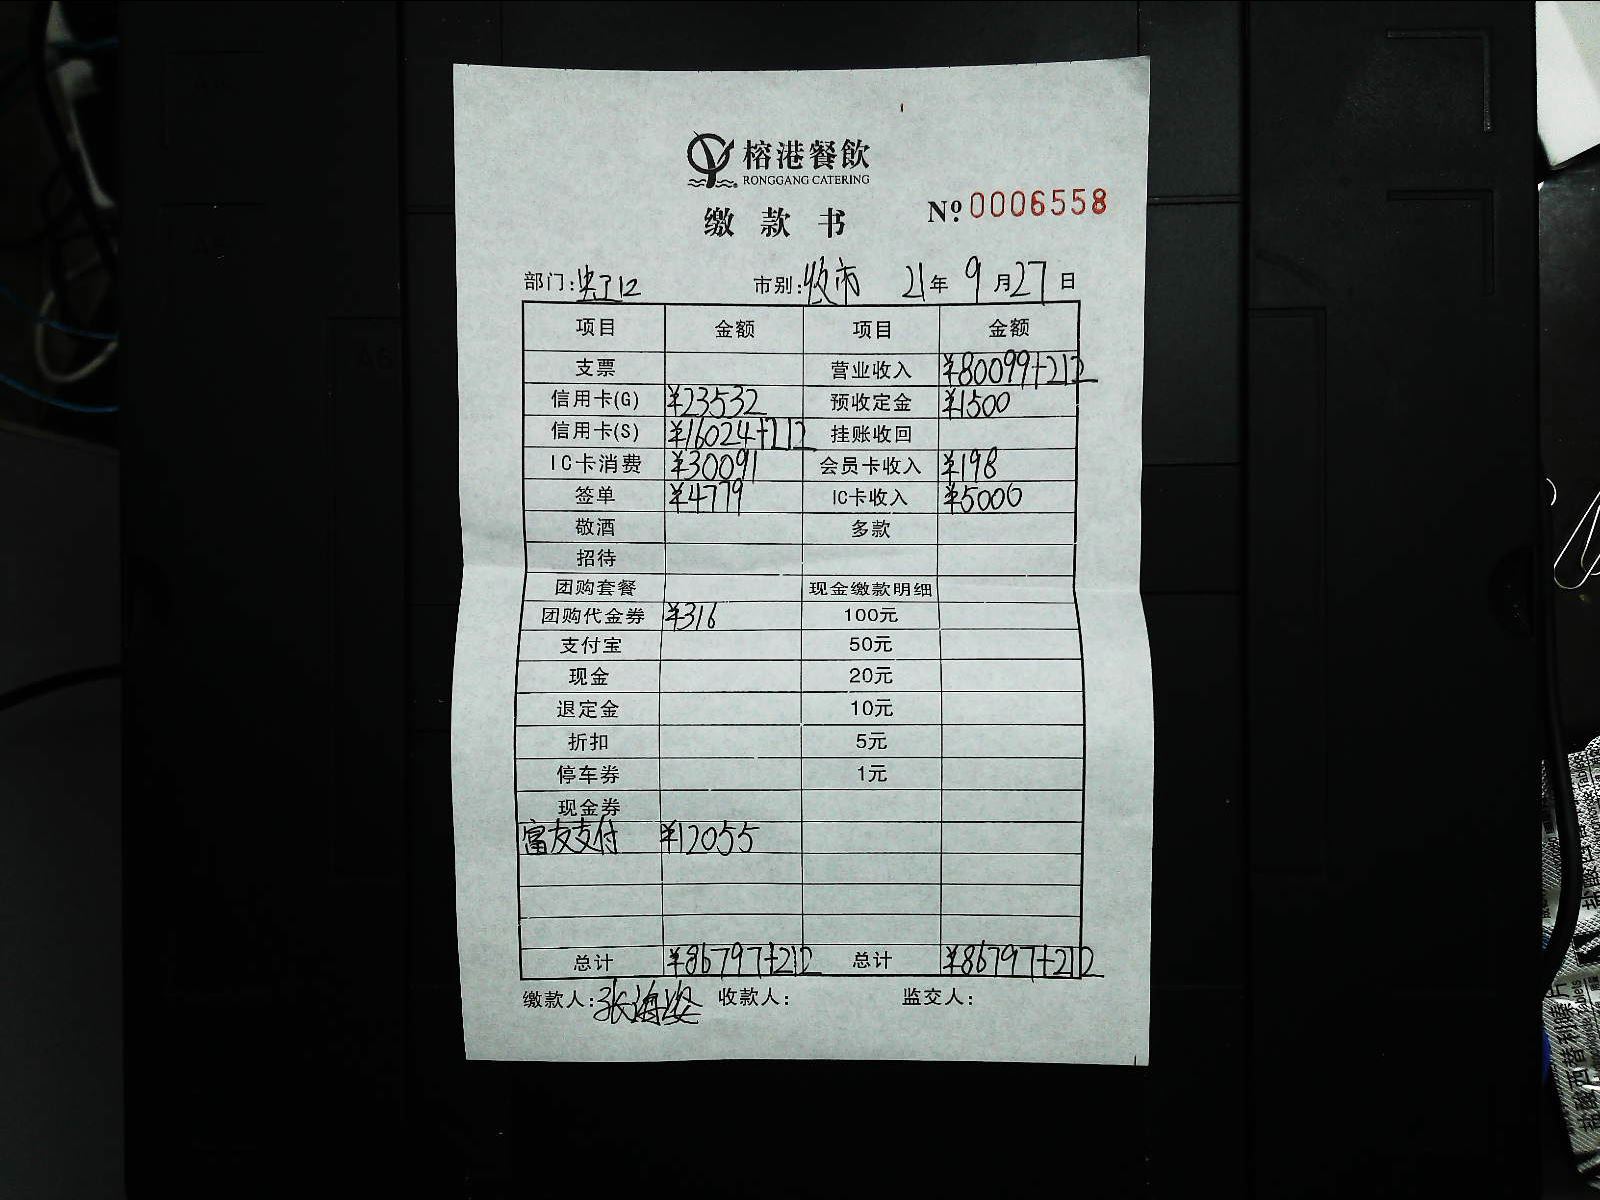 榕港餐飲
RONGGANG CATERING
缴款书 No.0006558
部门: 市别:收市 21年9月27日
项目 金额 项目 金额
支票 营业收入 ¥80099+212
信用卡(G) ¥23532 预收定金 ¥1500
信用卡(S) ¥16024+212 挂账收回
IC卡消费 ¥30091 会员卡收入 ¥198
签单 ¥4779 IC卡收入 ¥5000
敬酒 多款
招待
团购套餐 现金缴款明细
团购代金券 ¥316 100元
支付宝 50元
现金 20元
退定金 10元
折扣 5元
停车券 1元
现金券
富友支付 ¥12055
总计 ¥86797+212 总计 ¥86797+212
缴款人:张海姿 收款人: 监交人: